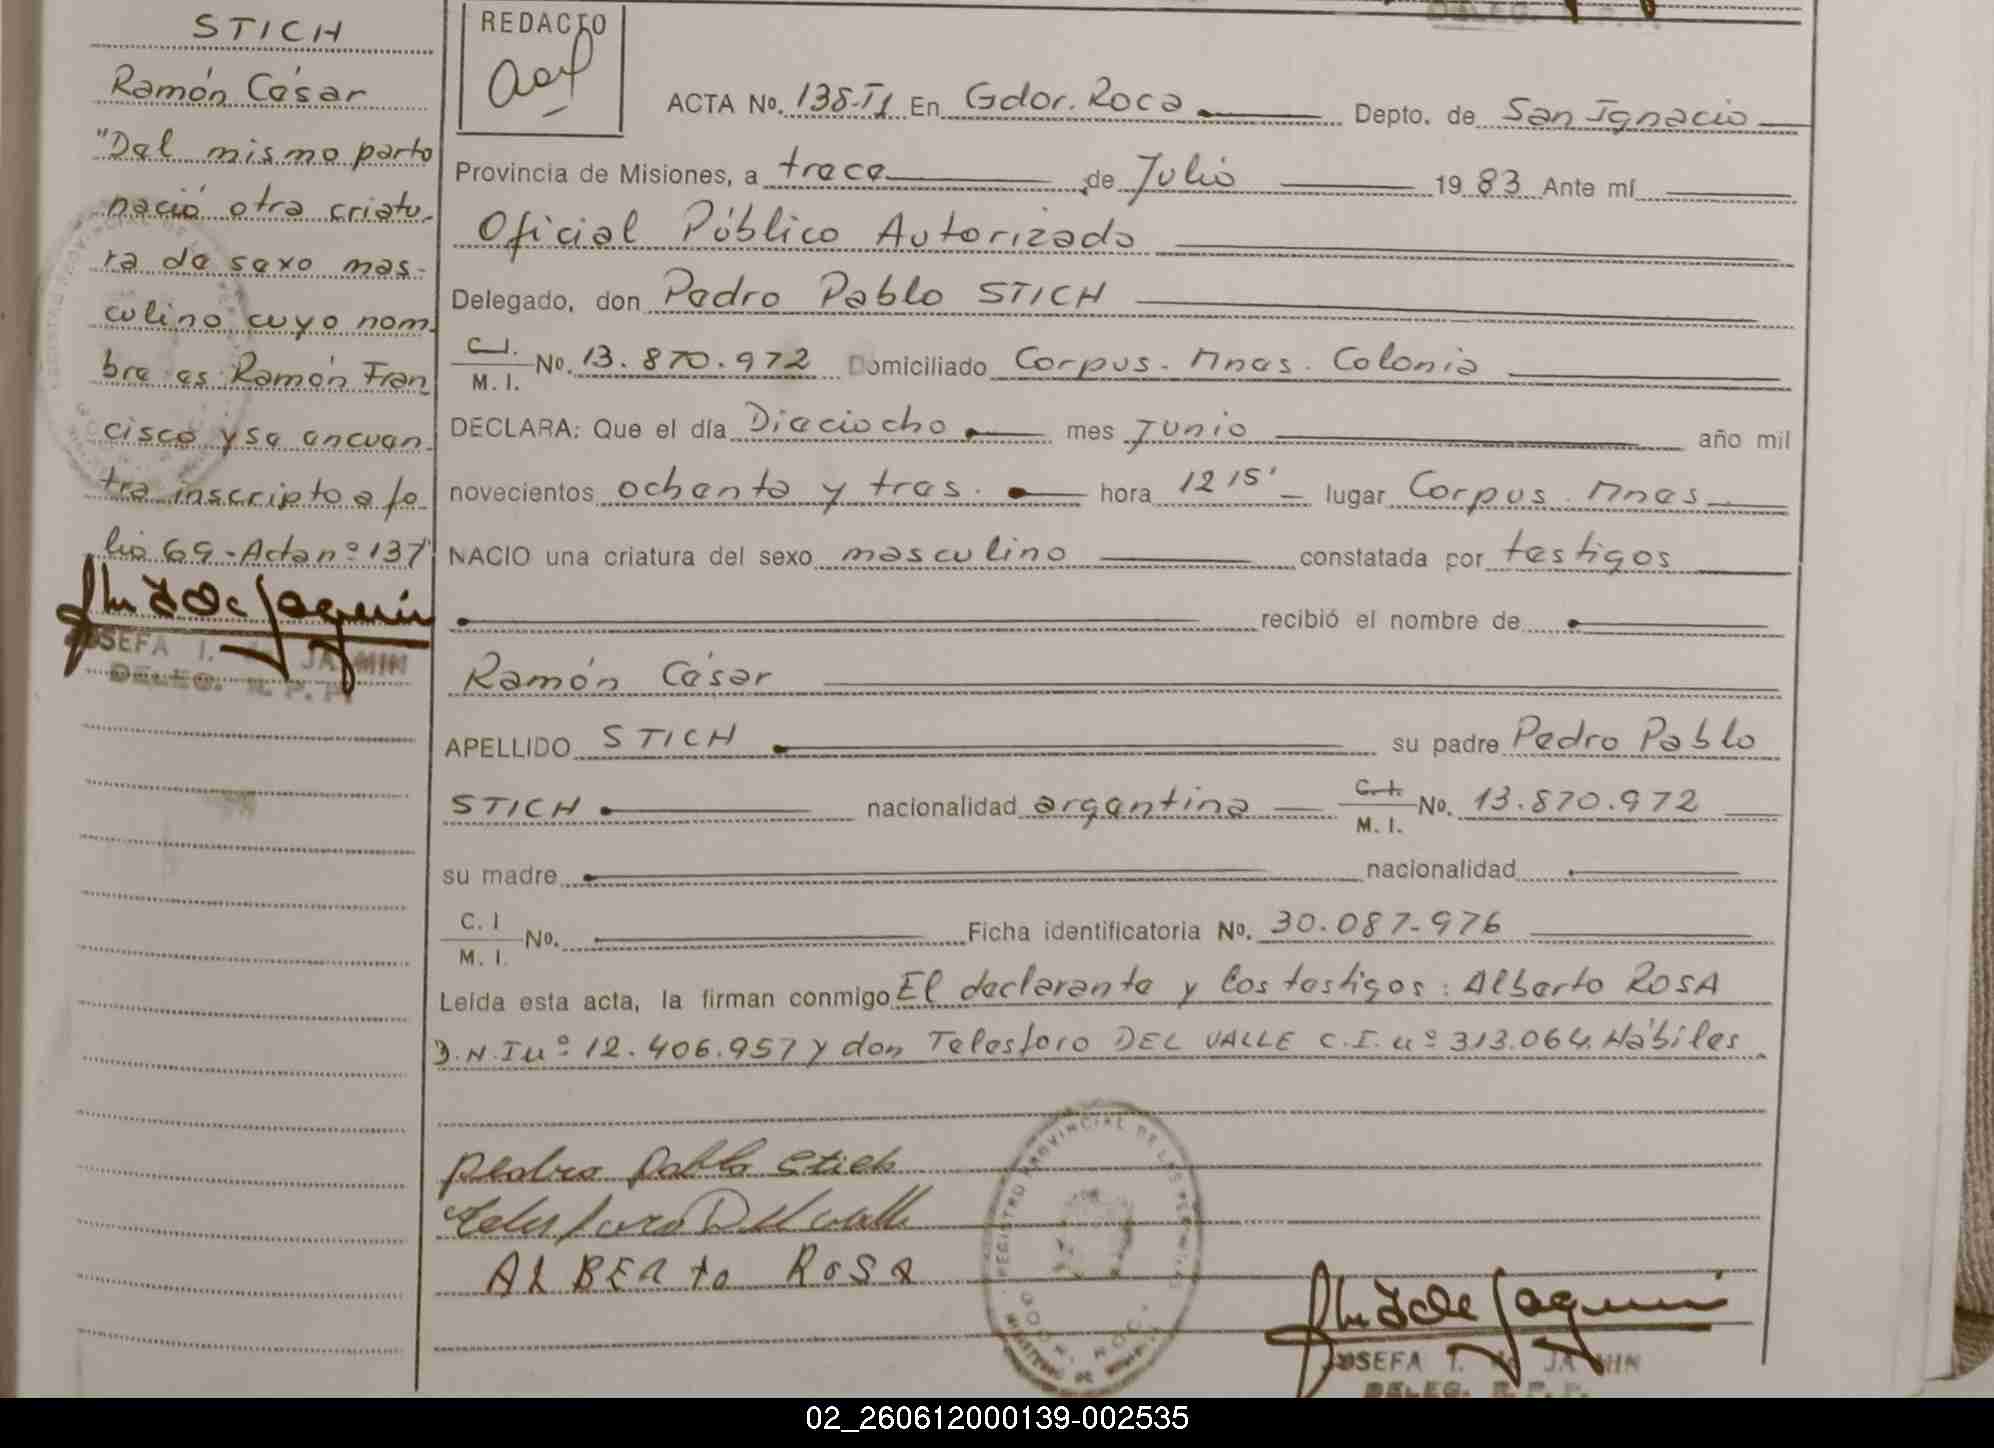 STICH
Ramón César
"Del mismo parto
nació otra criatu-
ra de sexo mas-
culino cuyo nom-
bre es Ramón Fran
cisco y se encuen-
tra inscripto a fo-
lio 69-Acta nº 137"
JOSEFA I. de JAQMIN
DELEG. R. P. P.
REDACTO
ACTA No. 138-T1 En Gdor. Roca Depto. de San Ignacio
Provincia de Misiones, a trece de Julio 1983 Ante mí
Oficial Público Autorizado
Delegado, don Pedro Pablo STICH
C.I.
M. I. No. 13.870.972 Domiciliado Corpus. Mnes. Colonia
DECLARA: Que el día Dieciocho mes Junio año mil
novecientos ochenta y tres. hora 12 15' lugar Corpus. Mnes
NACIO una criatura del sexo masculino constatada por testigos
recibió el nombre de
Ramón César
APELLIDO STICH su padre Pedro Pablo
STICH nacionalidad argentina C.I. M. I. No. 13.870.972
su madre nacionalidad
C. I
M. I. No. Ficha identificatoria No. 30.087.976
Leída esta acta, la firman conmigo El declarante y los testigos: Alberto ROSA
D.N.I nº 12.406.957 y don Telesforo DEL VALLE C.I. nº 313.064. Hábiles
Pedro Pablo Stich
Telesforo Del valle
ALBERto RoSA
REGISTRO PROVINCIAL DE LAS PERSONAS
JOSEFA I. de JAQMIN
DELEG. R. P. P.
02_260612000139-002535